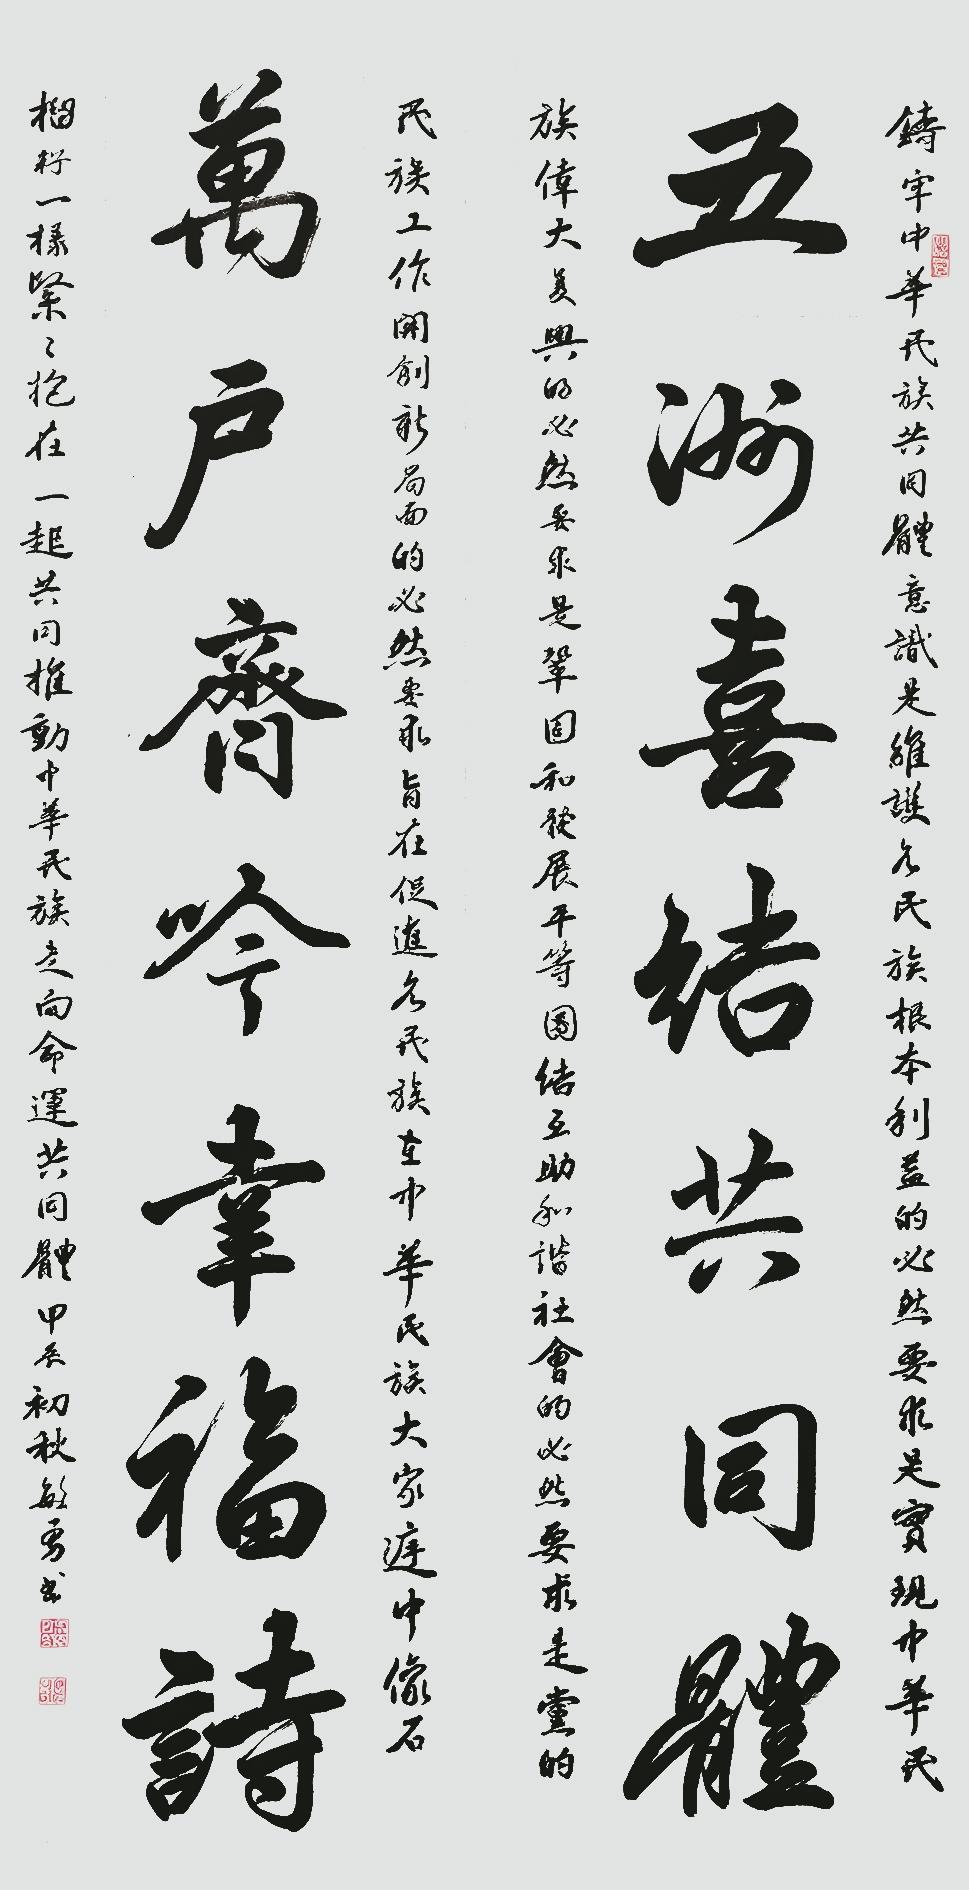 鑄牢中華民族共同體意識是維護各民族根本利益的必然要求是實現中華民
五洲喜結共同體
族偉大复興的必然要求是鞏固和發展平等團結互助和諧社會的必然要求是黨的
民族工作開創新局面的必然要求旨在促進各民族在中華民族大家庭中像石
萬户齊吟幸福詩
榴籽一樣緊々抱在一起共同推動中華民族走向命運共同體甲辰初秋敏勇书